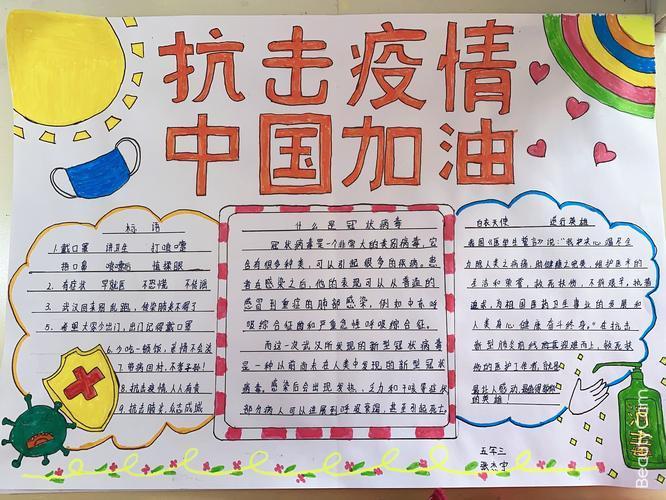 抗击疫情
中国加油
标语
1.戴口罩 讲卫生 打喷嚏
捂口鼻 喷嚏后 揉眼
2.有症状 早就医 不恐慌 不传谣
3.武汉回来别乱跑,传染肺炎不得了
5.希望大家少出门,出门记得戴口罩
6.少吃一顿饭,亲情不会淡
7.带病回村,不孝子孙!
8.抗击疫情 人人有责
9.抗击肺炎,众志成城
什么是冠状病毒
冠状病毒是一个非常大的类别病毒,它
含有很多种类,可以引起很多的疾病。患
者在感染之后,他的表现可以从普通的
感冒到重症的肺部感染,例如中东呼
吸综合征和严重急性呼吸综合征。
而这一次武汉所发现的新型冠状病毒
是一种以前尚未在人类中发现的新型冠状
病毒。感染后会出现发热、乏力和干咳等症状
部分病人可以进展到呼吸衰竭,甚至引起死亡。
白衣天使 逆行英雄
我国《医学生誓言》说:“我决心竭尽全
力除人类之病痛,助健康之完美,维护医术的
圣洁和荣誉,救死扶伤,不辞艰辛,执着
追求,为祖国医药卫生事业的发展和
人类身心健康奋斗终身。”在抗击
新型肺炎前线
他的医护工作者,就是
最让人感动、最值得敬佩
的英雄!
五年三
张杰中
BeautyCam